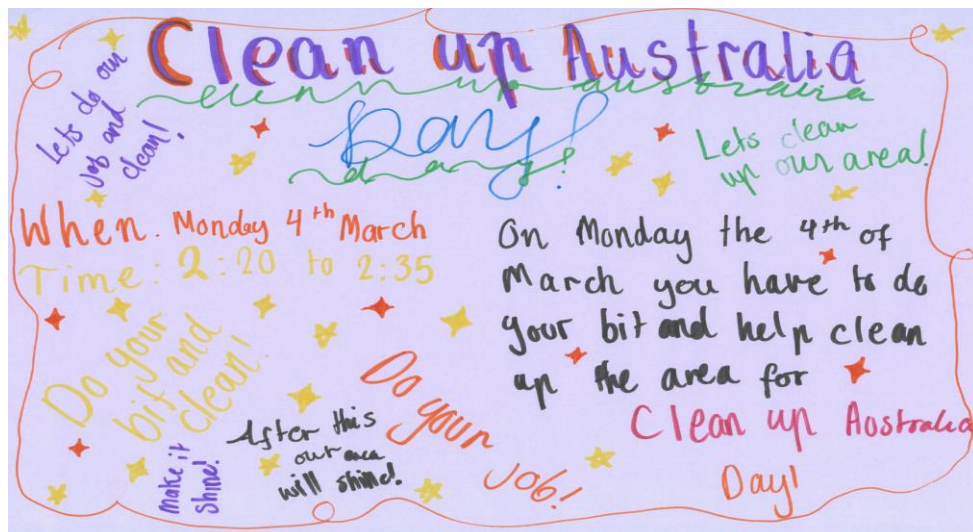 Clean up Australia
clean up australia
Day!
day!
Lets do our
job and
clean!
Lets clean
up our area!
When. Monday 4th March
Time: 2:20 to 2:35
On Monday the 4th of
March you have to do
your bit and help clean
up the area for
Clean up Australia
Day!
Do your
bit and
clean!
make it
shine!
After this
our area
will shine!
Do your
job!